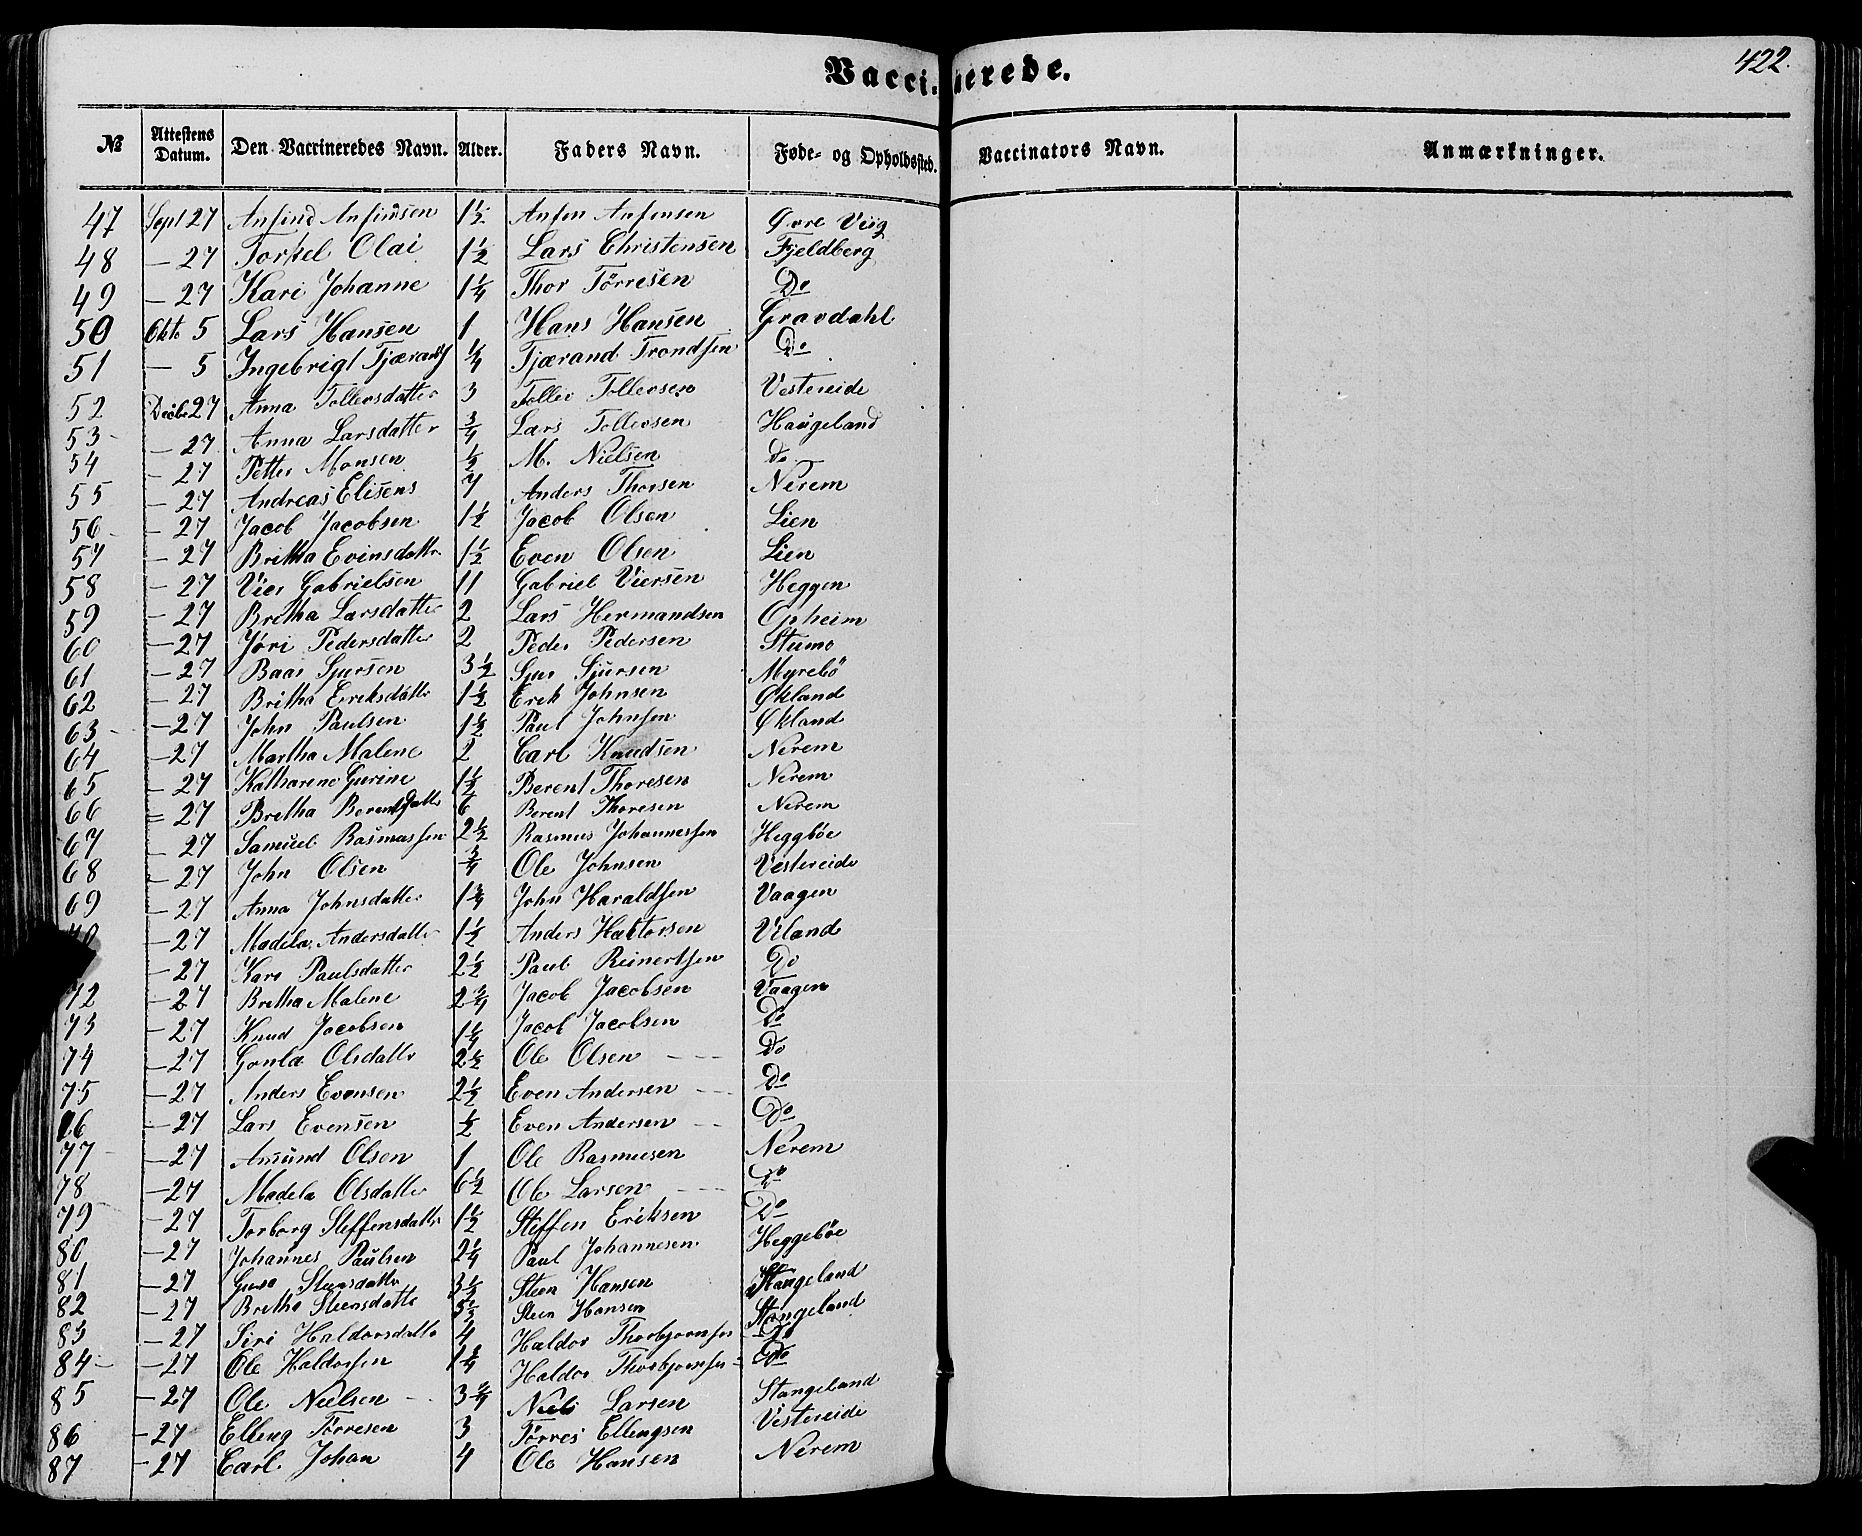 Vaccinerede.
422.
№ Attestens Datum. Den Vaccineredes Navn. Alder. Faders Navn. Føde- og Opholdssted. Vaccinators Navn. Anmærkninger.
47 Sept 27 Anfind Anfinsen 1 1/2 Anfen Anfensen
48 — 27 Torkel Olai 1 1/2 Lars Christensen Fjeldberg
49 — 27 Kari Johanne 1 1/4 Thor Törresen Do
50 Okt 5 Lars Hansen 1 Hans Hansen Gravdahl
51 — 5 Ingebrigt 1/4 Tjærand Trondsen Do
52 Decbr 27 Anna Tollevsdatter 3 Tollev Tollevsen Vestereide
53 — 27 Anna Larsdatter 3/4 Lars Tollevsen Haugeland
54 — 27 Petter Monsen 1/2 M. Nielsen do
55 — 27 Andreas Elisens 7 Anders Thorsen Nerem
56 — 27 Jacob Jacobsen 1 1/2 Jacob Olsen Lien
57 — 27 Britha Evinsdattr 1 1/2 Even Olsen Lien
58 — 27 Vier Gabrielsen 11 Gabriel Viersen Heggen
59 — 27 Britha Larsdatter 2 Lars Hermandsen Opheim
60 — 27 Jöri Pedersdatter 2 Peder Pedersen Stumo
61 — 27 Baar Sjursen 3 1/2 Sjur Sjursen Myrebö
62 — 27 Britha Eriksdattr 1 1/2 Erik Johnsen Økland
63 — 27 John Paulsen 1 1/2 Paul Johnsen Økland
64 — 27 Martha Malene 2 Carl Knudsen Nerem
65 — 27 Katharene Gurine 1 1/2 Berent Thoresen Nerem
66 — 27 Britha Berentsdattr 6 Berent Thoresen Nerem
67 — 27 Samuel Rasmussen 2 1/2 Rasmus Johannessen Heggböe
68 — 27 John Olsen 3/4 Ole Johnsen Vestereide
69 — 27 Anna Johnsdatter 1 3/4 John Haraldsen Vaagen
70 — 27 Madela Andersdatter 1 1/2 Anders Haktorsen Viland
— 27 Kari Paulsdatter 2 1/2 Paul Reinertsen Do
72 — 27 Britha Malene 2 3/4 Jacob Jacobsen Vaagen
73 — 27 Knud Jacobsen 1 1/4 Jacob Jacobsen Do
74 — 27 Gonla Olsdattr 2 1/2 Ole Olsen — — Do
75 — 27 Anders Evensen 2 1/2 Even Andersen — — Do
76 — 27 Lars Evensen 1/2 Even Andersen — — Do
77 — 27 Amund Olsen 1 Ole Rasmusen Nerem
78 — 27 Madela Olsdatter 6 1/2 Ole Larsen — — Do
79 — 27 Torborg Steffensdattr 1 1/2 Steffen Eriksen Do
80 — 27 Johannes Paulsen 2 1/4 Paul Johannesen Heggebøe
81 — 27 Guro Steensdattr 3 1/2 Steen Hansen Stangeland
82 — 27 Britha Steensdattr Steen Hansen Stangeland
83 — 27 Siri Haldorsdattr 4 Haldor Thorbjornsen Do
84 — 27 Ole Haldorsen 1 1/4 Haldor Thorbjornsen Do
85 — 27 Ole Nielsen 3 3/4 Niels Larsen Stangeland
86 — 27 Elleng Törresen 3 Törres Ellengsen Vestereide
87 — 27 Carl Johan 4 Ole Hansen Nerem